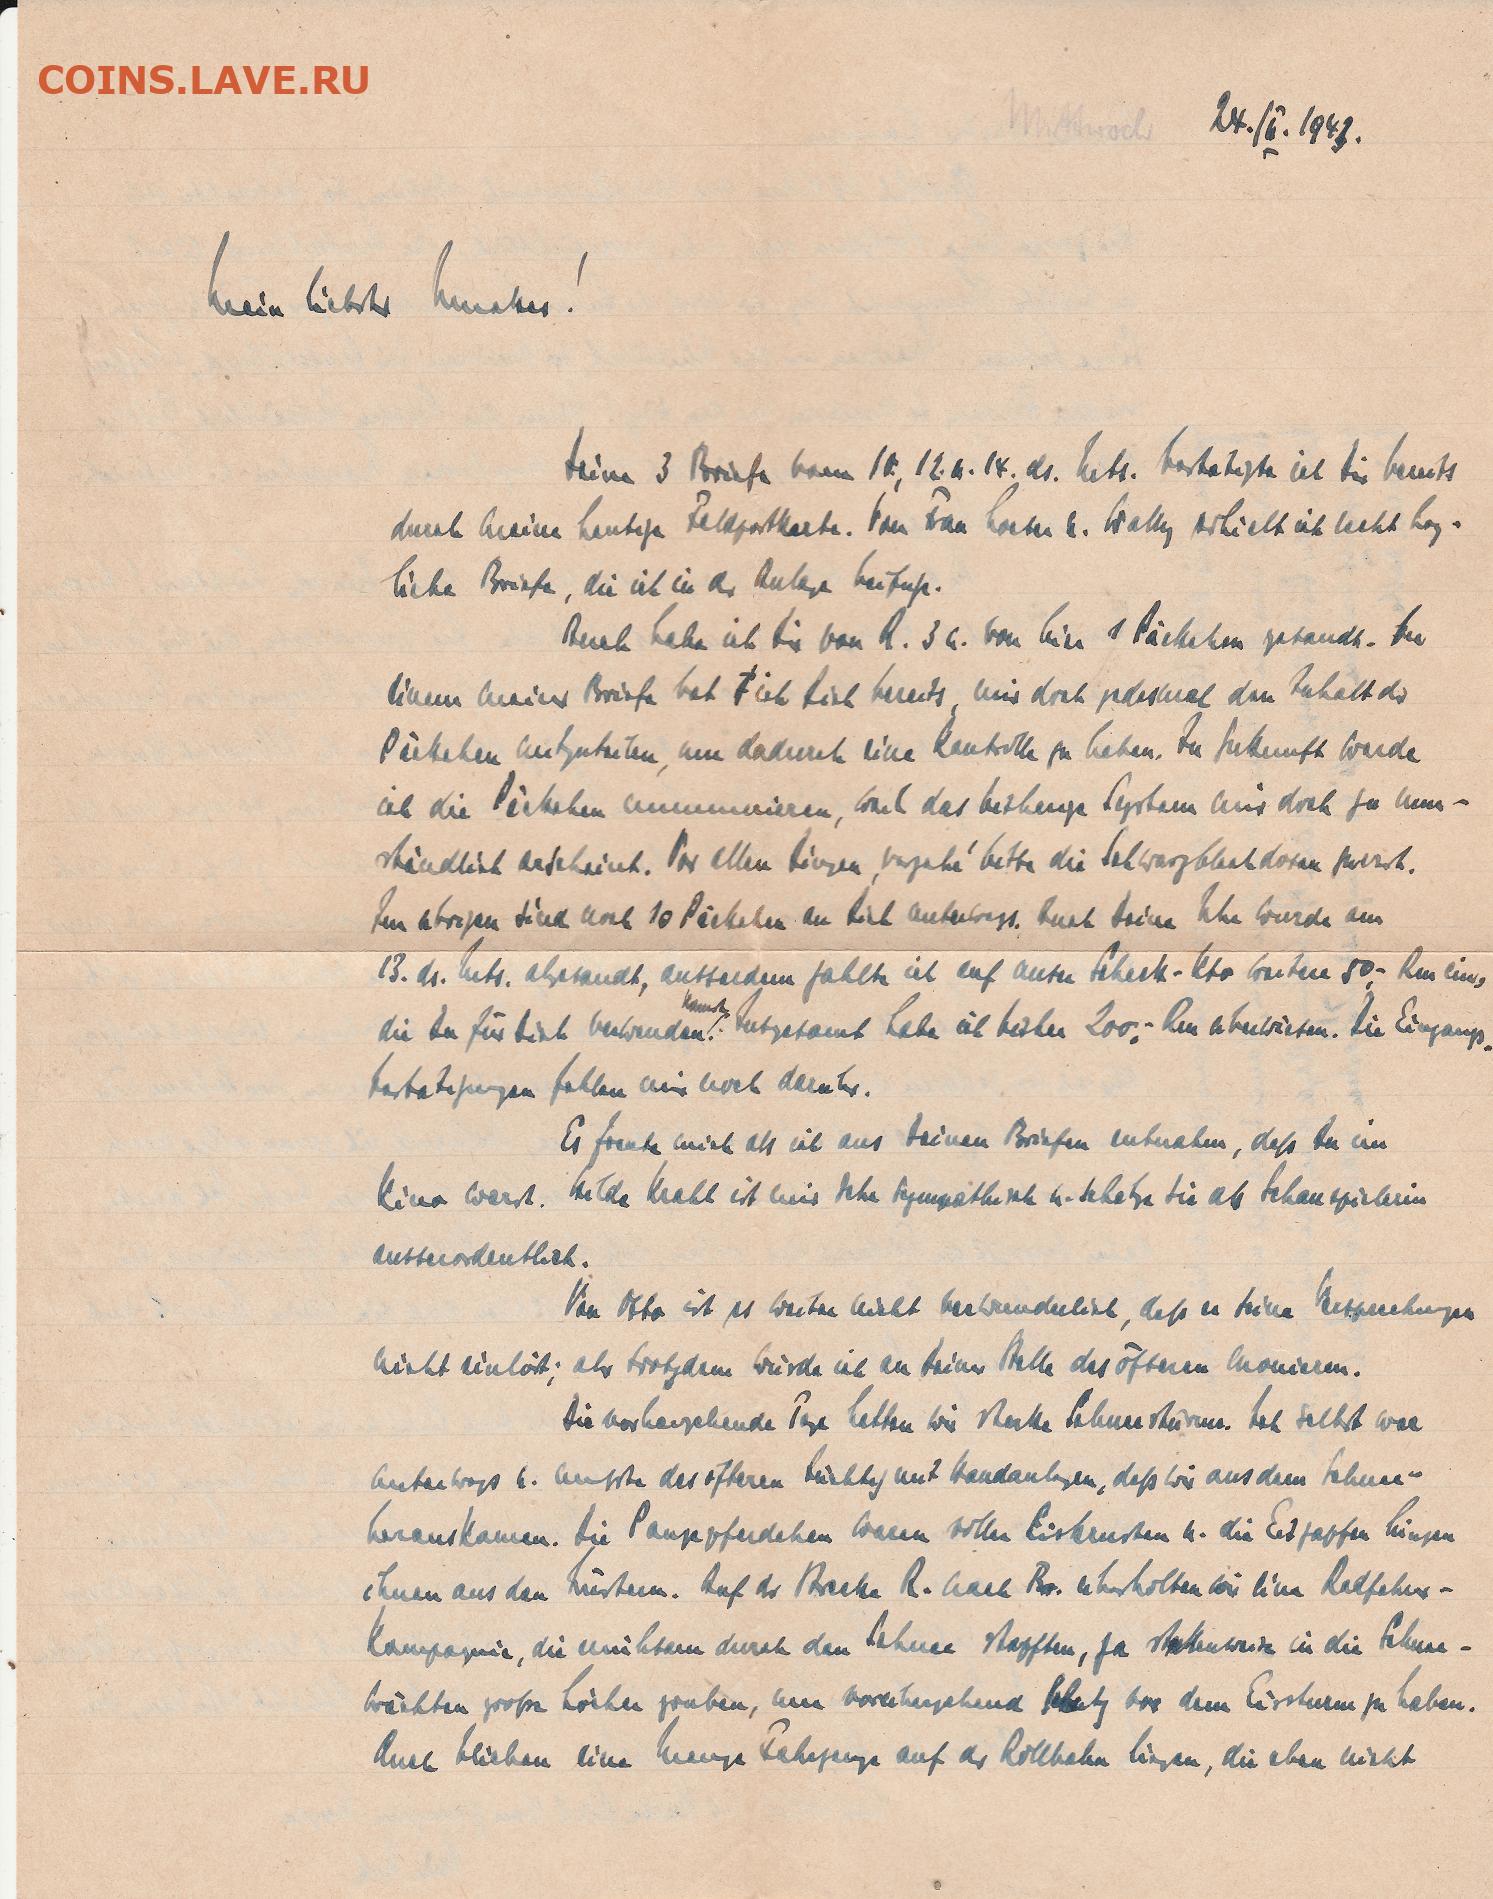 COINS.LAVE.RU
Mittwoch 24./II. 1943.
Mein liebster !
Deine 3 Briefe vom 10., 12. u. 14. ds. Mts. bestätigte ich Dir bereits
durch meine heutige Feldpostkarte. Von Frau u. Wally erhielt ich recht herz-
liche Briefe, die ich in der Anlage beifüge.
Auch habe ich Dir von R. 3 u. von hier 1 Päckchen gesandt. In
einem meiner Briefe bat ich Dich bereits, mir doch jedesmal den Inhalt der
Päckchen mitzuteilen, um dadurch eine Kontrolle zu haben. In Zukunft werde
ich die Päckchen nummerieren, weil das bisherige System mir doch zu um-
ständlich erscheint. Vor allen Dingen, verzehr' bitte die Schwarzblechdosen zuerst.
Im übrigen sind noch 10 Päckchen an Dich unterwegs. Auch Deine Uhr wurde am
13. ds. Mts. abgesandt, ausserdem zahlte ich auf unser Scheck-Kto weitere 50,- Rm ein,
die Du für Dich verwenden kannst! Insgesamt habe ich bisher 200,- Rm überwiesen. Die Eingangs-
bestätigungen fehlen mir noch darüber.
Es freute mich als ich aus Deinen Briefen entnahm, daß Du im
Kino warst. Hilde Krahl ist mir sehr sympathisch u. schätze sie als Schauspielerin
ausserordentlich.
Von Otto ist es weiter nicht verwunderlich, daß er seine Versprechungen
nicht einlöst; aber trotzdem würde ich an Deiner Stelle des öfteren monieren.
Die vorhergehende Tage hatten wir starke Schneestürme. Ich selbst war
unterwegs u. mußte des öfteren tüchtig mit Handanlegen, daß wir aus dem Schnee
herauskamen. Die Panjepferdchen waren voller Eiskrusten u. die Eiszapfen hingen
ihnen aus den Nüstern. Auf der Strecke R. nach Br. überholten wir eine Radfahr-
Kompagnie, die mühsam durch den Schnee stapften, ja streckenweise in die Schnee-
wächten große Löcher gruben, um vorübergehend Schutz vor dem Eissturm zu haben.
Auch blieben eine Menge Fahrzeuge auf der Rollbahn liegen, die eben nicht